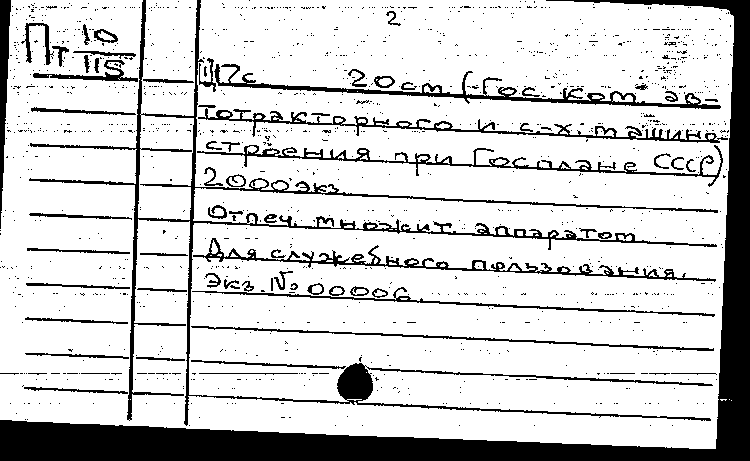 2
Пт 10/115
117с 20см (Гос. ком. ав-
тотракторного и с-х. машино-
строения при Госплане СССР)
2000экз.
Отпеч. множит. аппаратом.
Для служебного пользования.
Экз. № 00006.